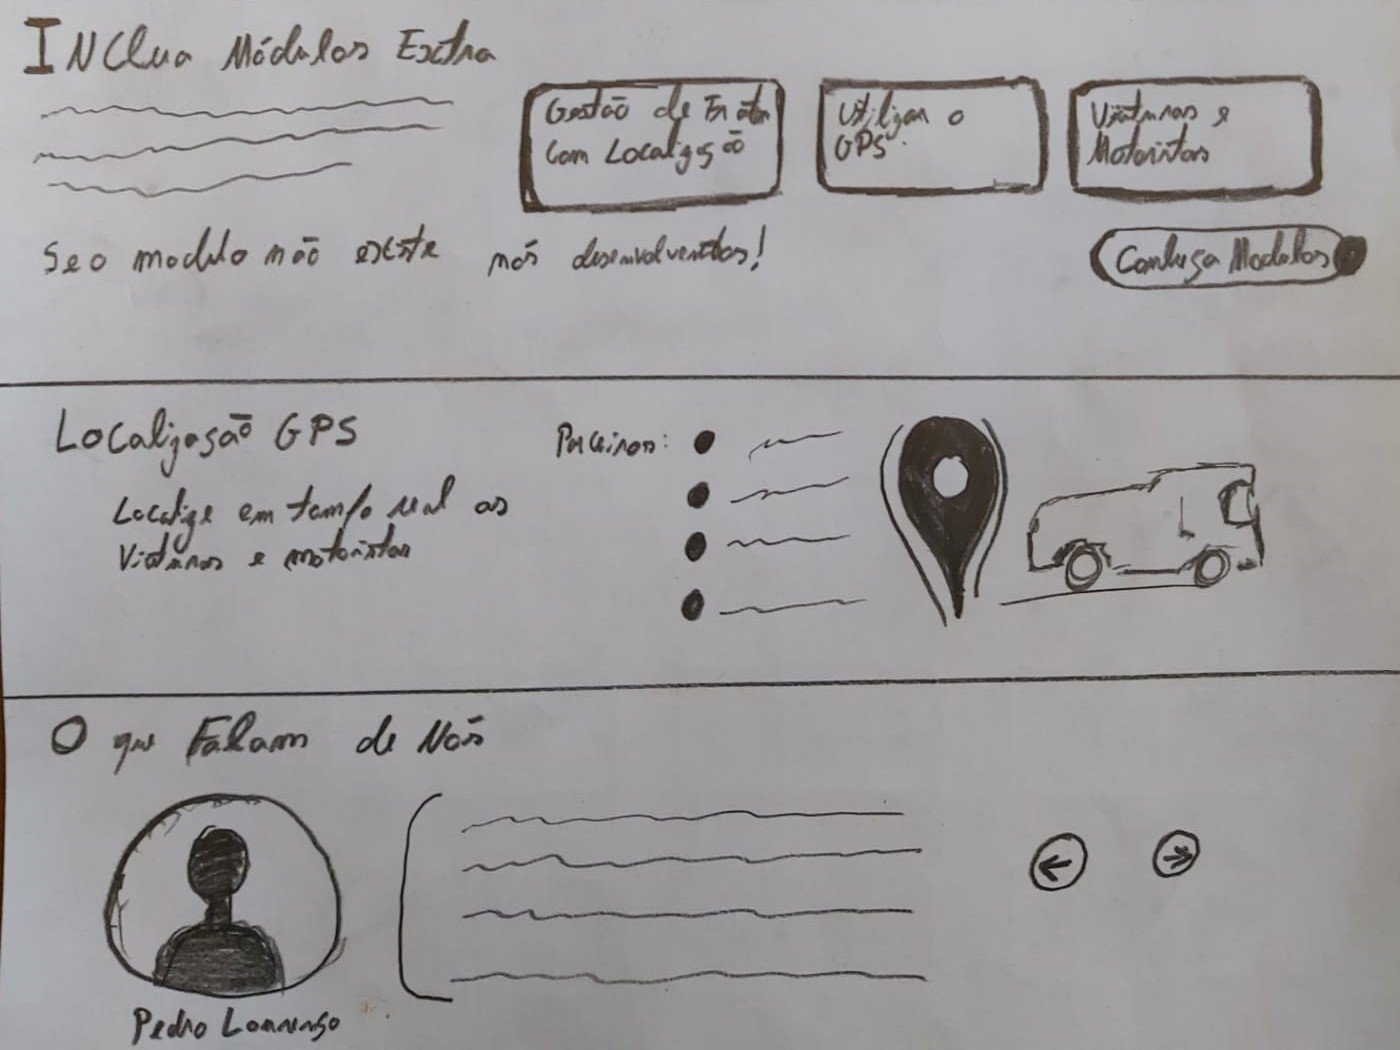 Inclua Módulos Extra
Gestão de Frotas
com Localização
Utilizar o
GPS.
Viaturas e
Motoristas
Se o modulo não existe nós desenvolvemos!
Conheça Modulos
Localização GPS
Parceiros:
Localize em tempo real as
Viaturas e motoristas
O que Falam de Nós
Pedro Lourenço